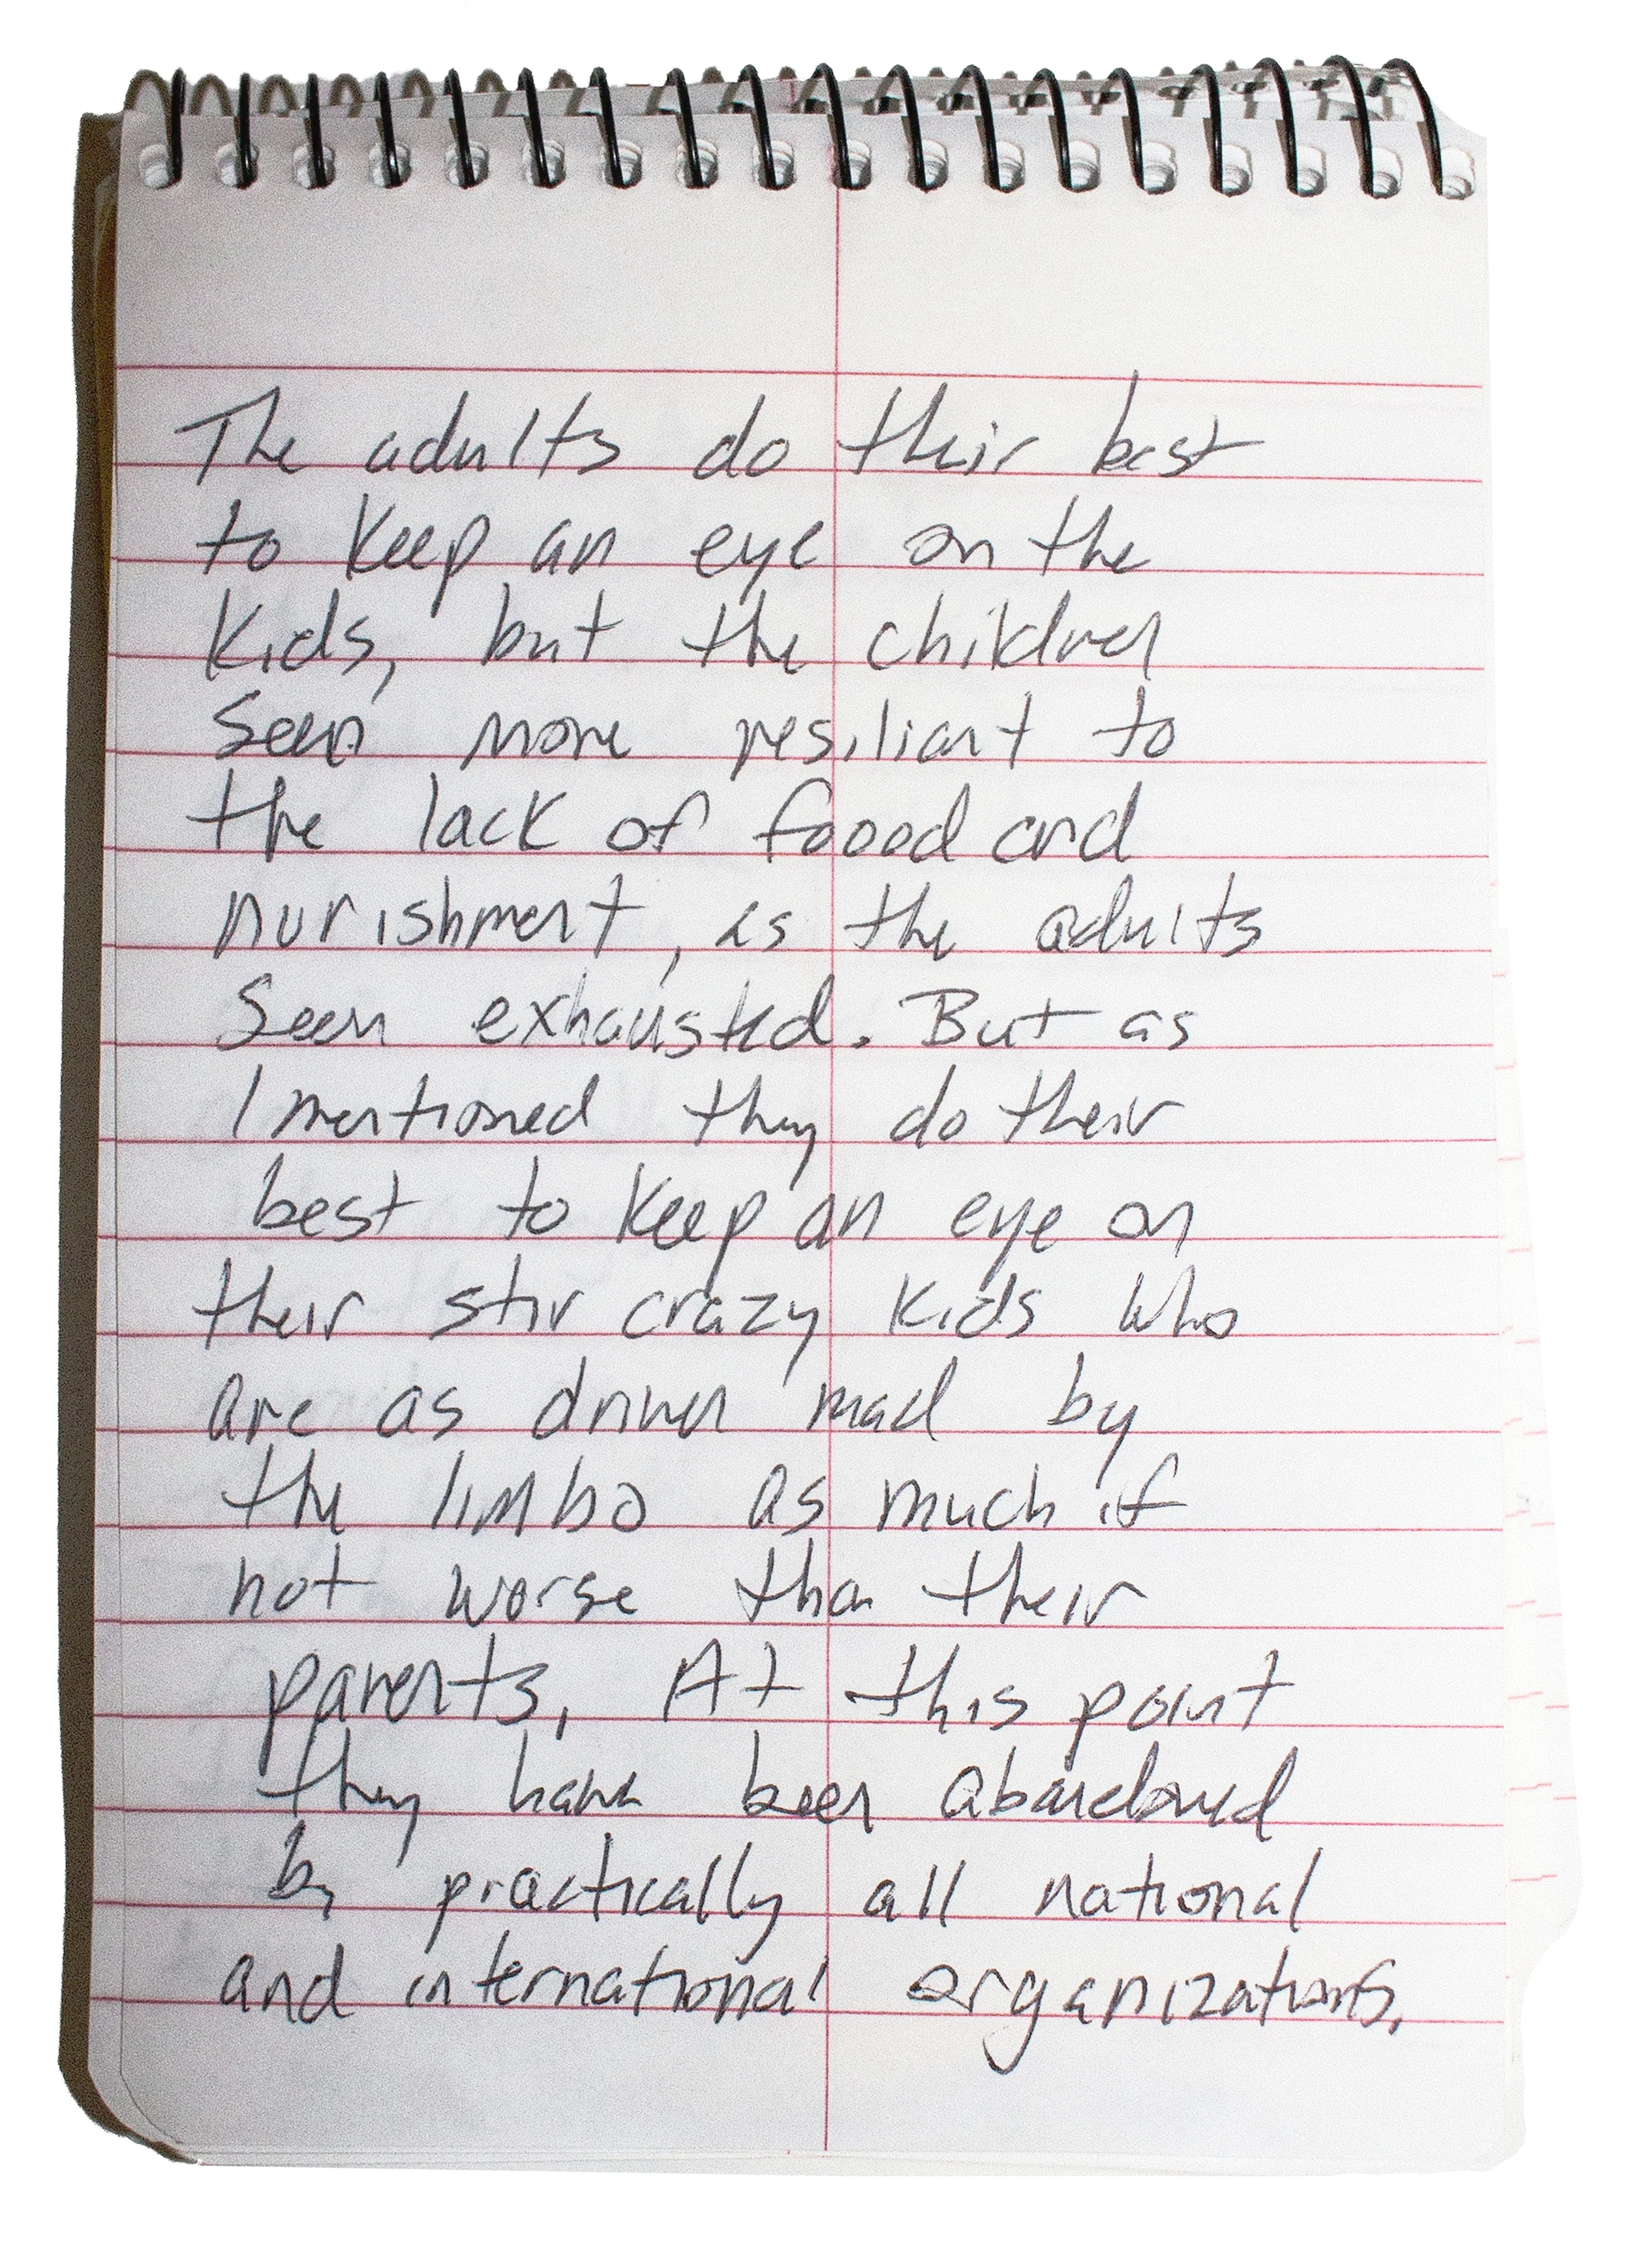 The adults do their best
to keep an eye on the
kids, but the children
seem more resiliant to
the lack of foood and
nurishment, as the adults
seem exhausted. But as
I mentioned they do their
best to keep an eye on
their stir crazy kids who
are as driven mad by
the limbo as much if
not worse than their
parents. At this point
they have been abandoned
by practically all national
and international organizations.